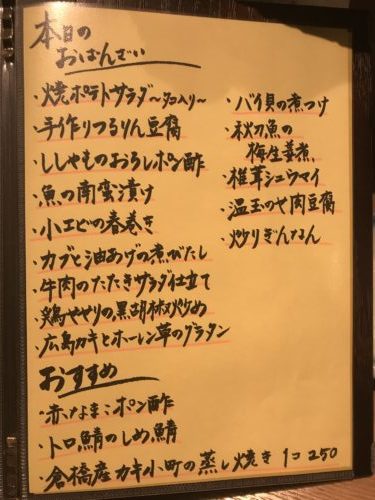 本日の
おばんざい
・焼ポテトサラダ～タコ入り～
・手作りつるりん豆腐
・ししゃものおろしポン酢
・魚の南蛮漬け
・小エビの春巻き
・カブと油あげの煮びたし
・牛肉のたたきサラダ仕立て
・鶏ややりの黒胡椒炒め
・広島カキとホーレン草のグラタン
・バイ貝の煮つけ
・秋刀魚の
梅生姜煮
・椎茸シュウマイ
・温玉のや肉豆腐
・炒りぎんなん
おすすめ
・赤なまこポン酢
・トロ鯖のしめ鯖
・倉橋産カキ小町の蒸し焼き 1コ 250